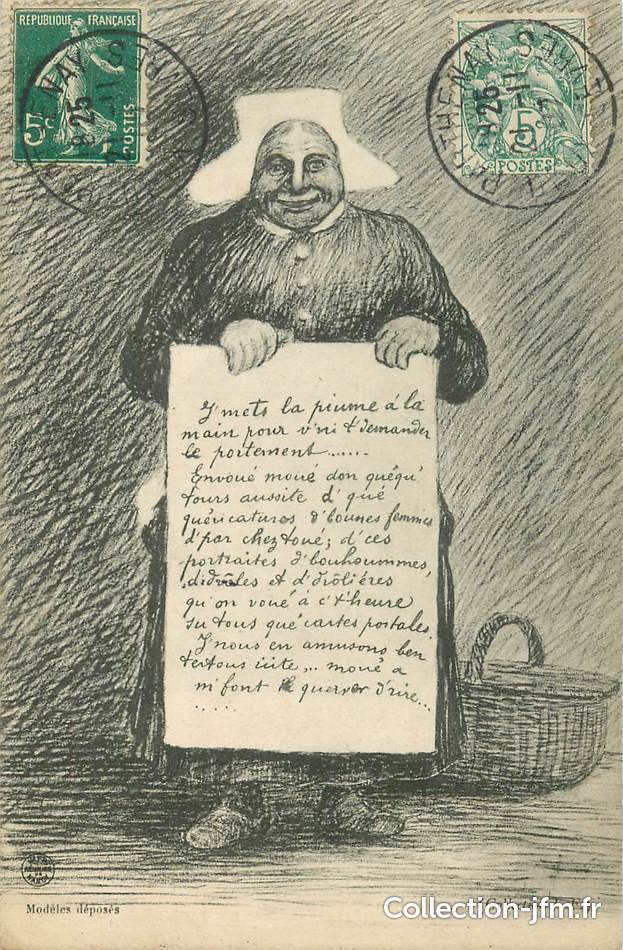 REPUBLIQUE FRANÇAISE
5c
POSTES
5c
POSTES
PARTHENAY
DEUX SEVRES
J'mets la piume à la
main pour v'ni t'demander
le portement......
Envoué moué don quéqu'
tours aussite d'qué
quéricatures d'bounes femmes
d'par chez toué; d'ces
portraites d'bouhoummes,
didrôles et d'drôlières
qu'on voué à c't'heure
su tous qué cartes postales.
J'nous en amusons ben
tertous icite,.. moué a
m'font querver d'rire...
.....
Modèles déposés
Collection-jfm.fr